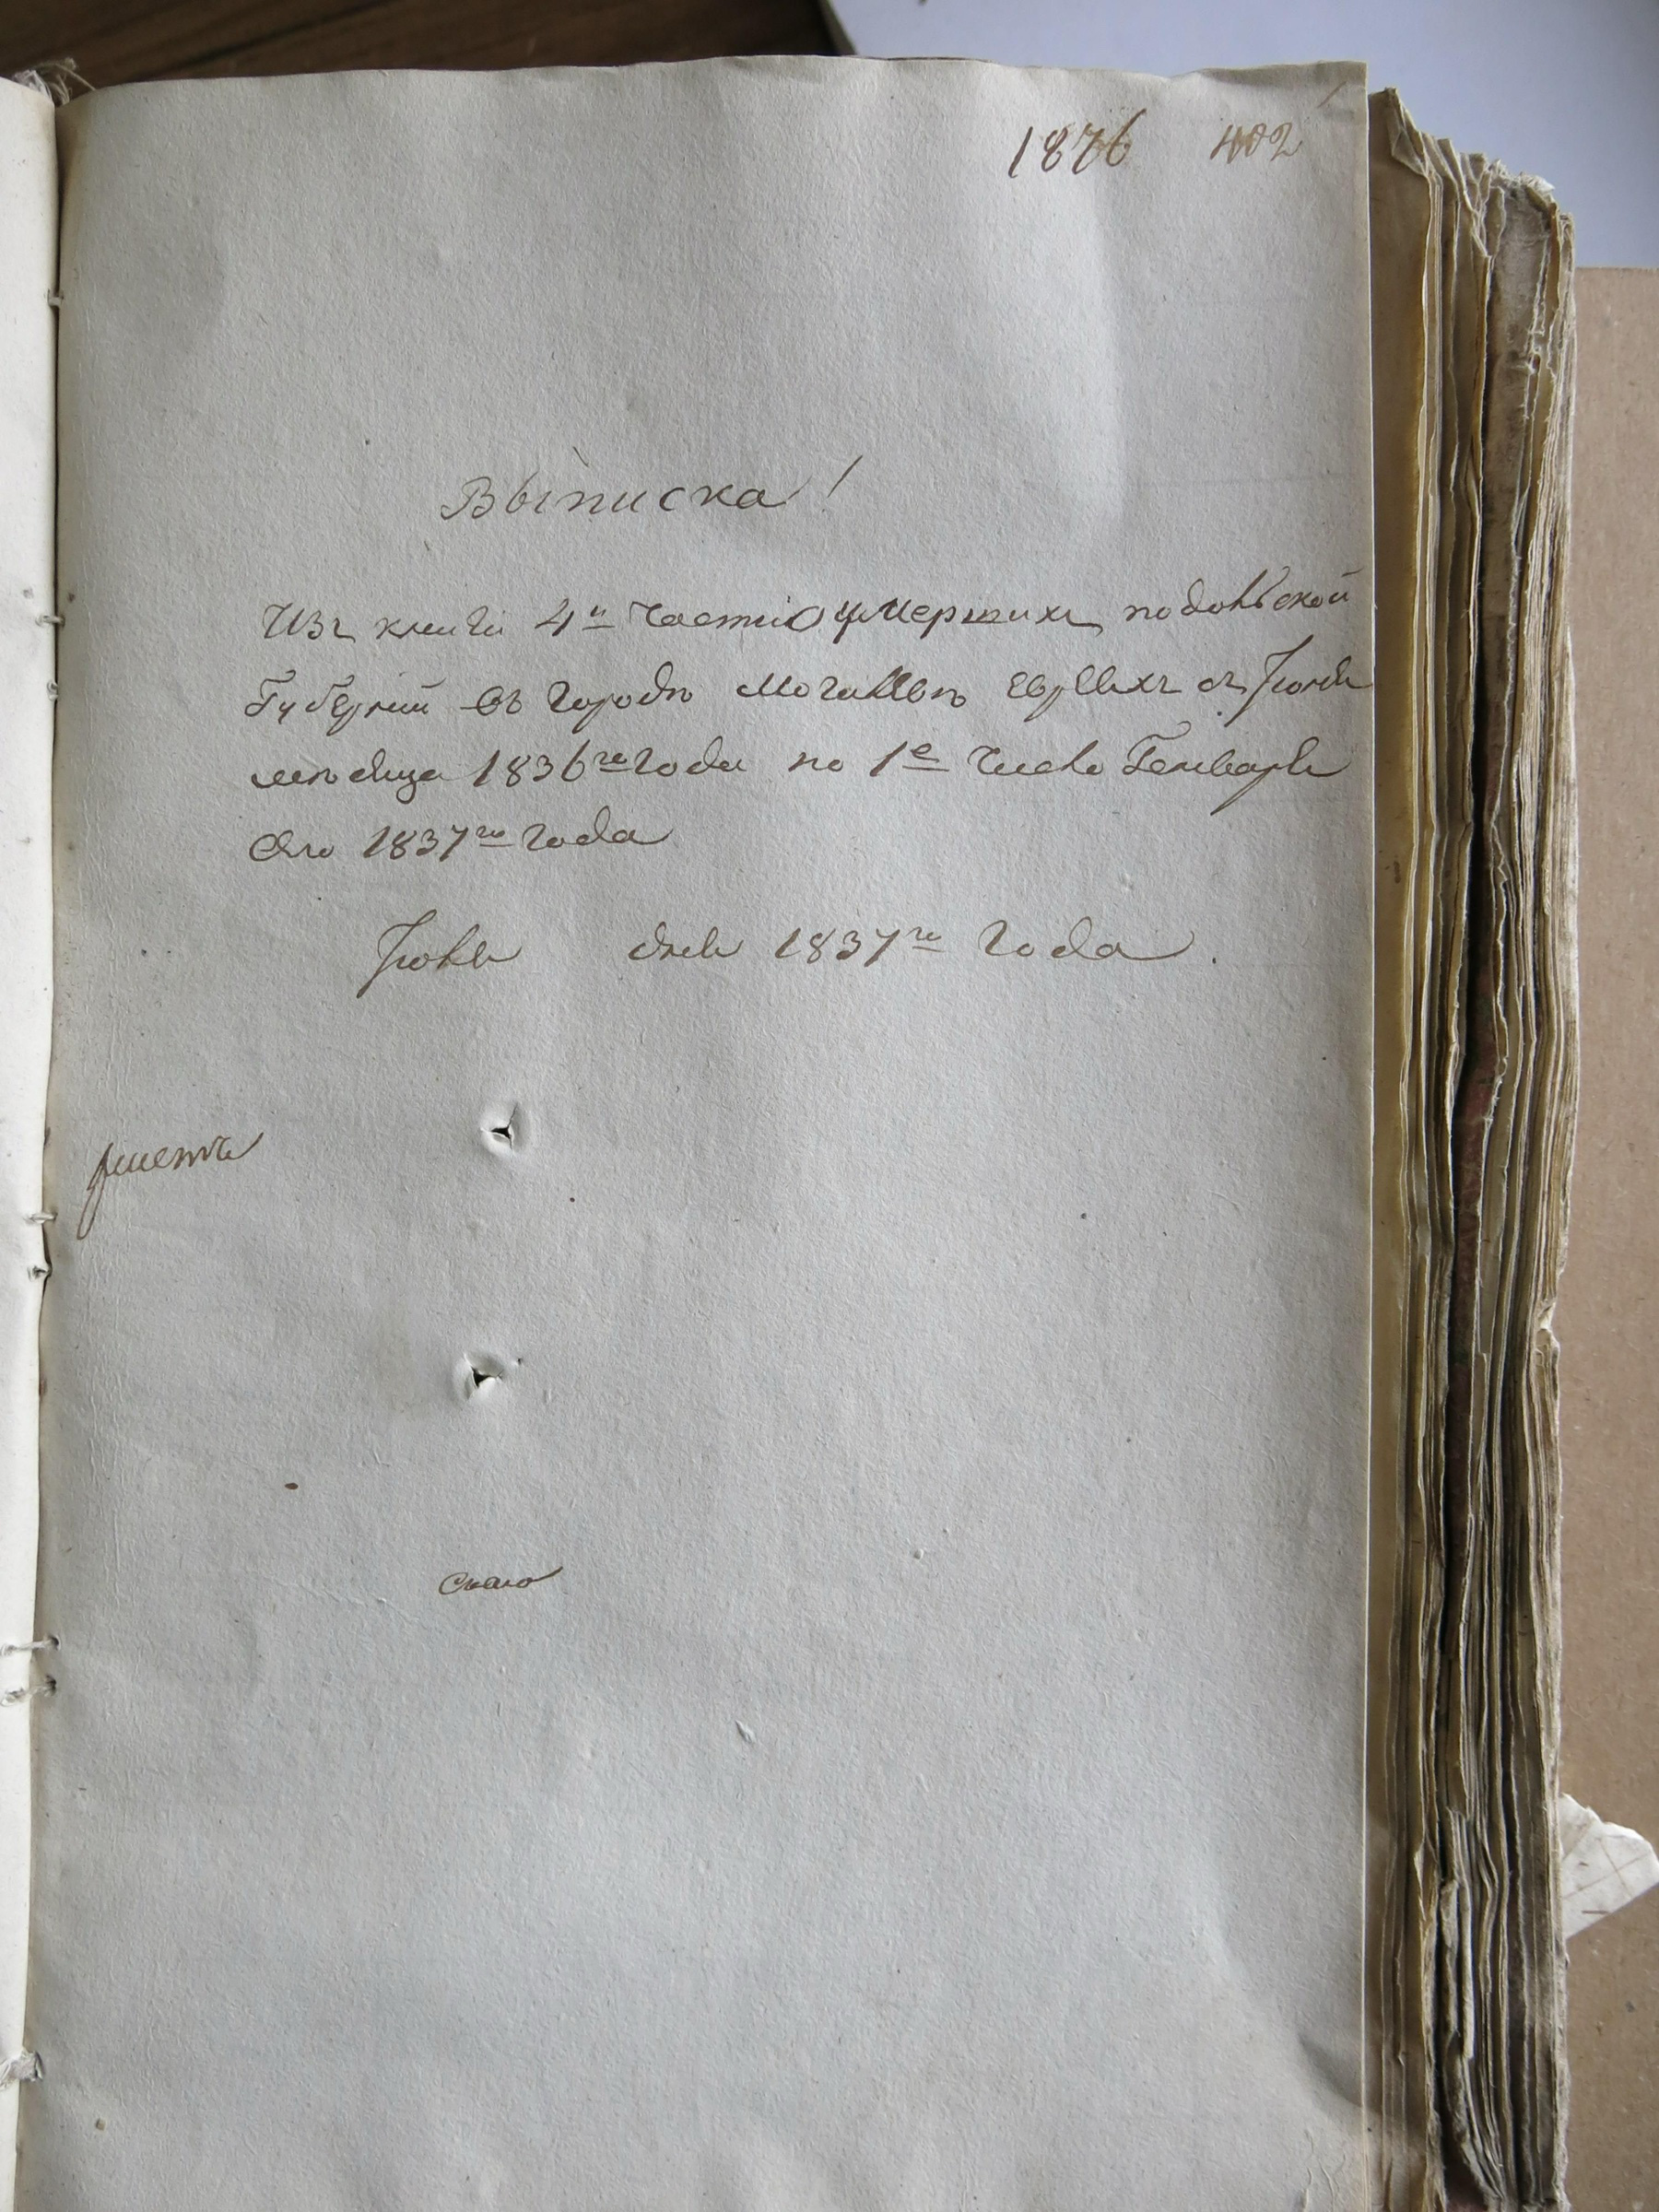 1876 402
Выписка!
Изъ книги 4й части о умершихъ подольской
Губерний въ городѣ Могилевѣ Евреихъ съ Іюля
мѣсяца 1836го года по 1е число Генваря
1837го года
Іюль дня 1837го года.